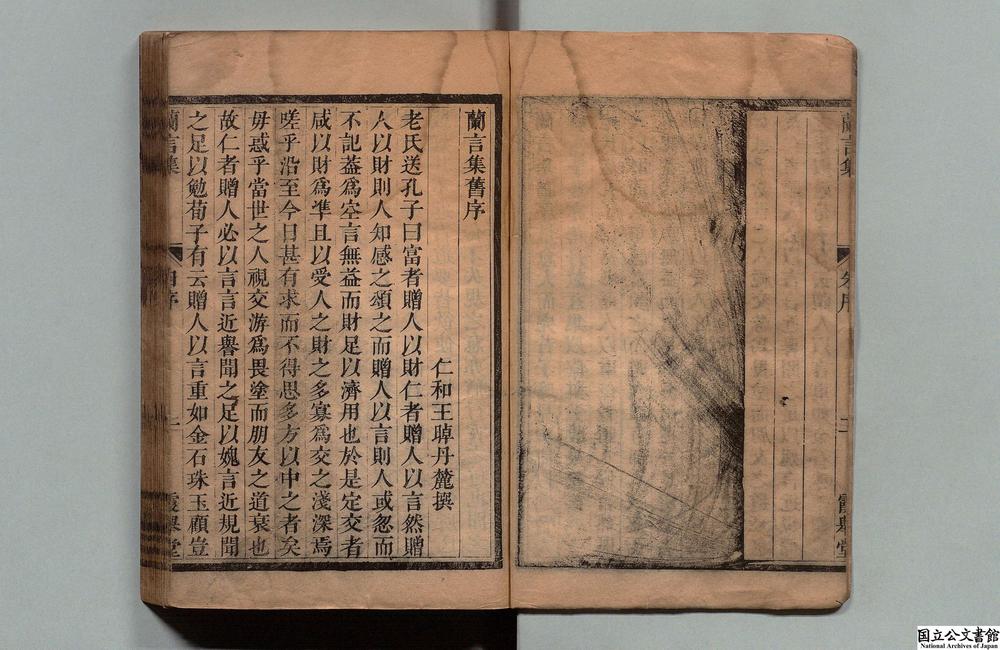 蘭言集
朱序
二
霞舉堂
蘭言集舊序
仁和王晫丹麓撰
老氏送孔子曰富者贈人以財仁者贈人以言然贈
人以財則人知感之頌之而贈人以言則人或忽而
不記葢爲空言無益而財足以濟用也於是定交者
咸以財爲凖且以受人之財之多寡爲交之淺深焉
嗟乎沿至今日甚有求而不得思多方以中之者矣
毋惑乎當世之人視交游爲畏塗而朋友之道衰也
故仁者贈人必以言言近譽聞之足以媿言近規聞
之足以勉荀子有云贈人以言重如金石珠玉顧豈
蘭言集
序
一
霞舉堂
国立公文書館
National Archives of Japan